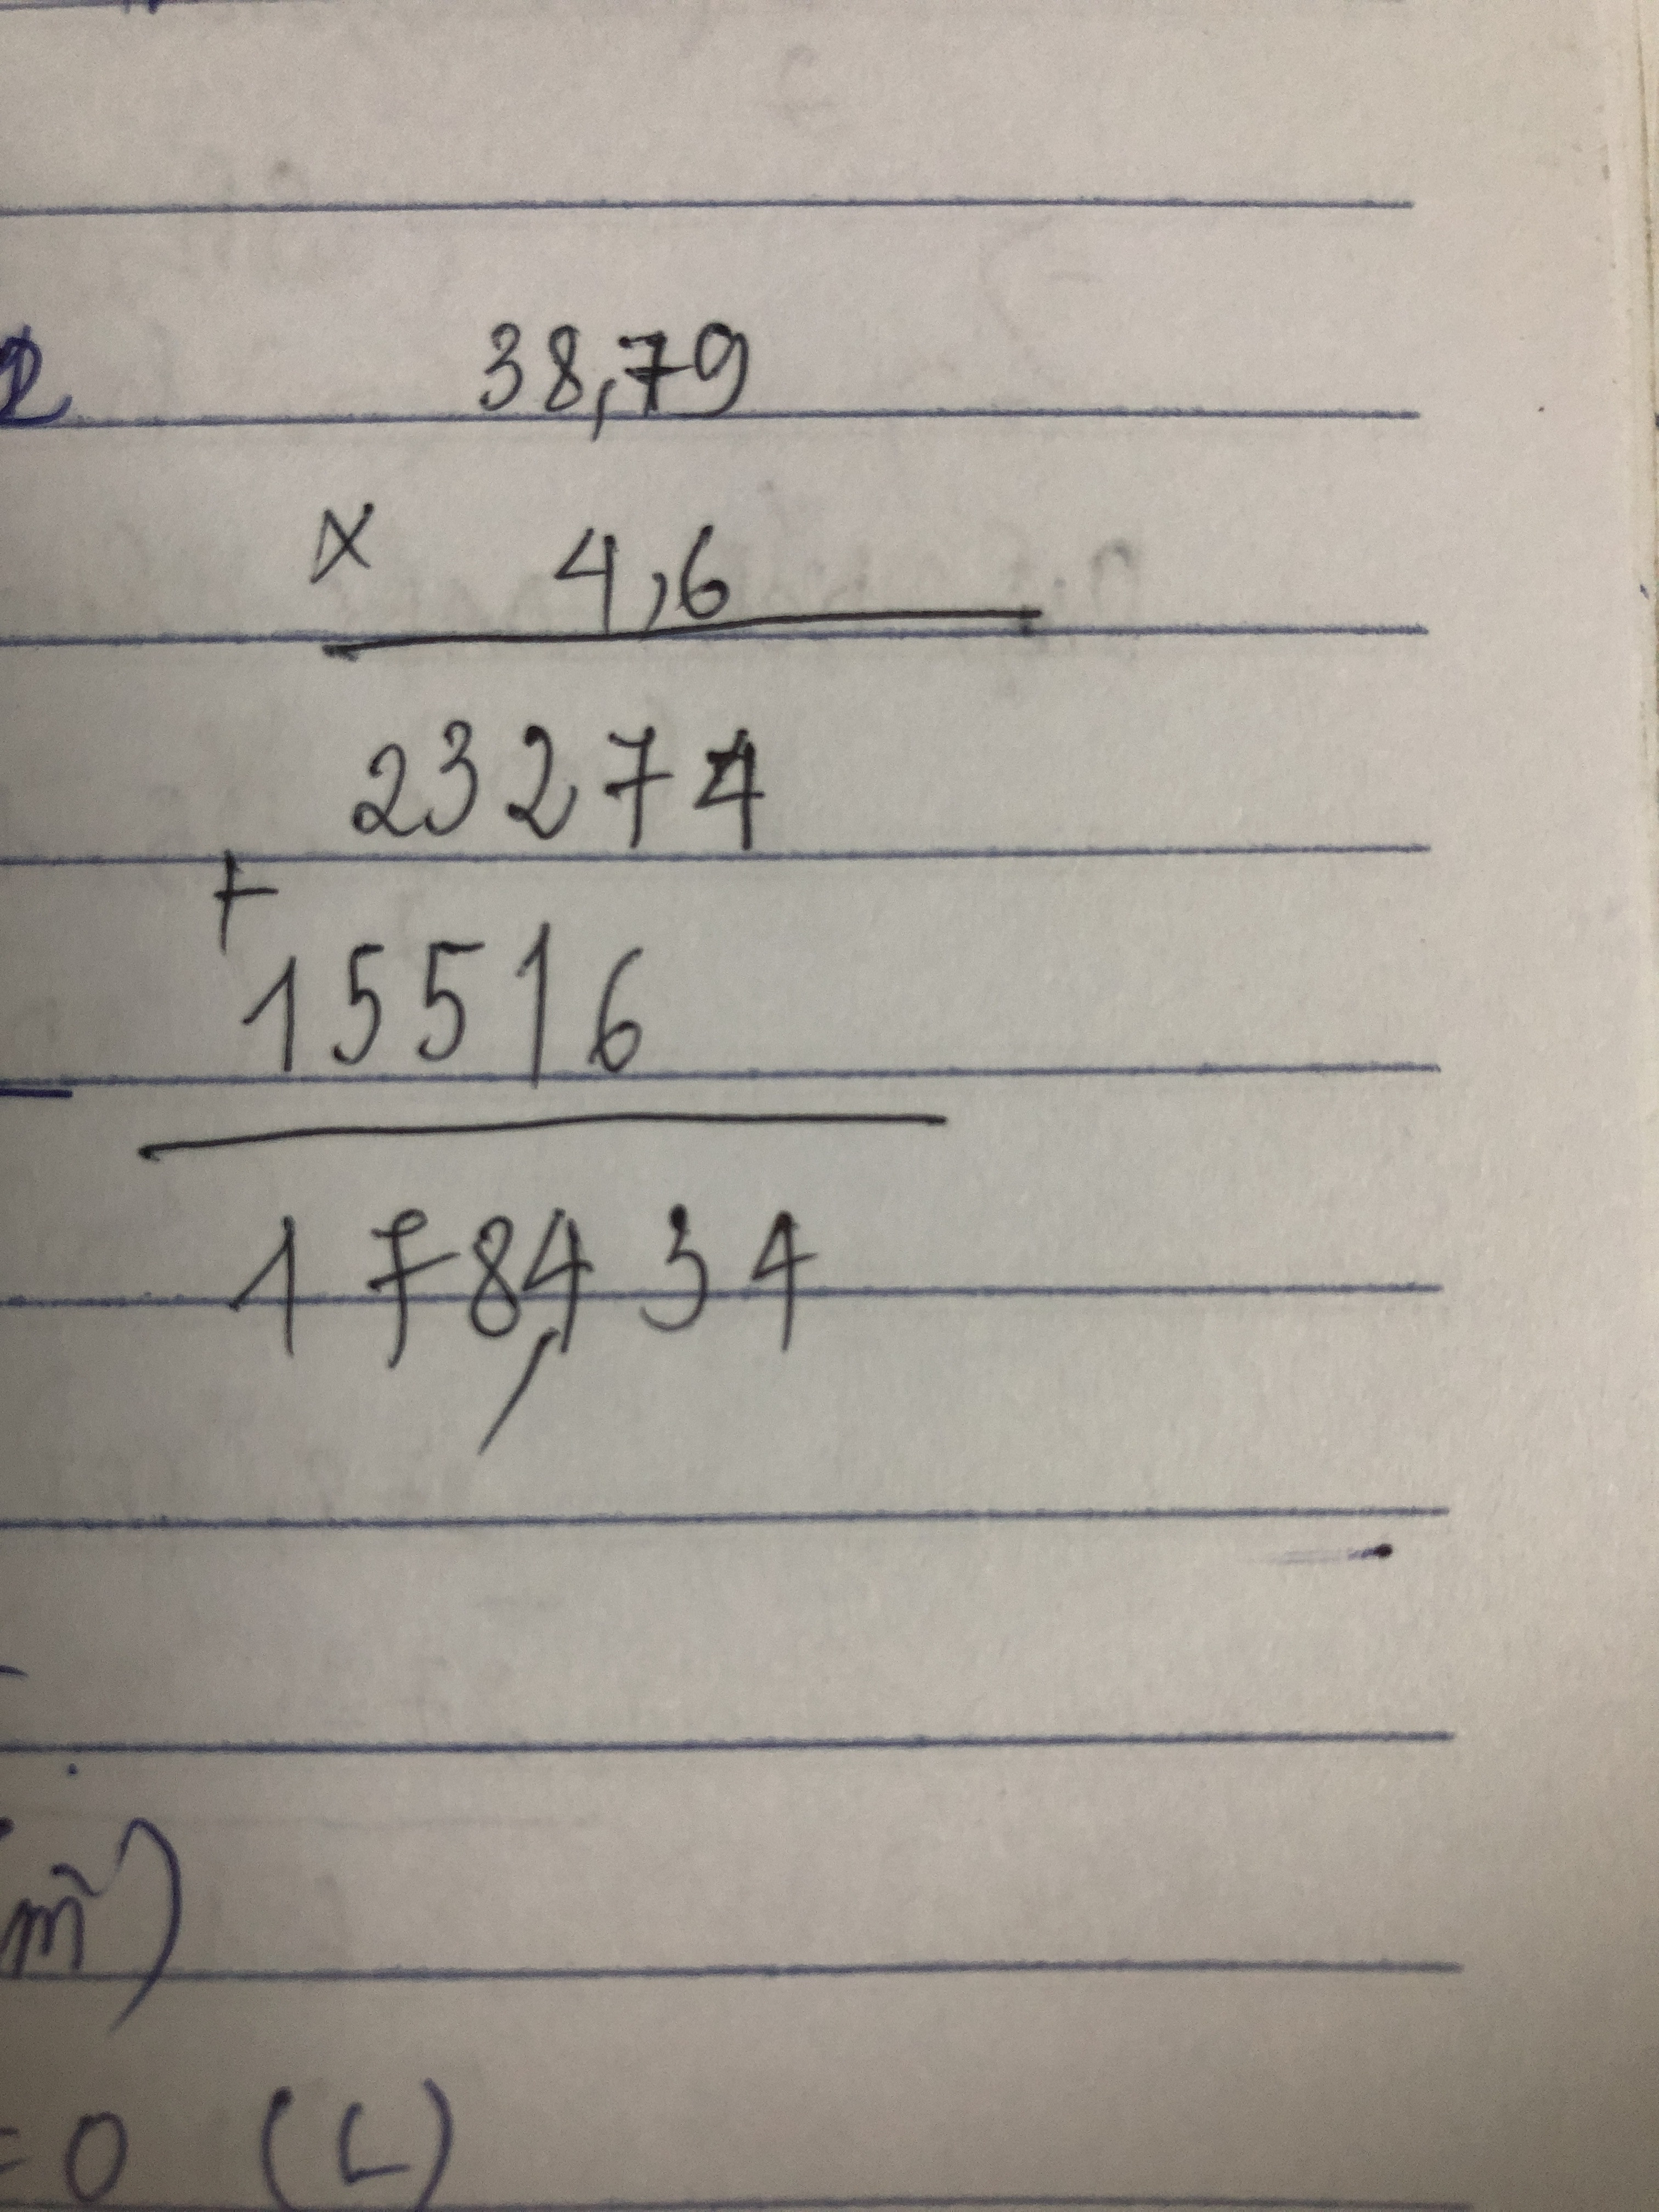 38,79
× 4,6
23274
+
15516
178,434
m²)
= 0 (L)